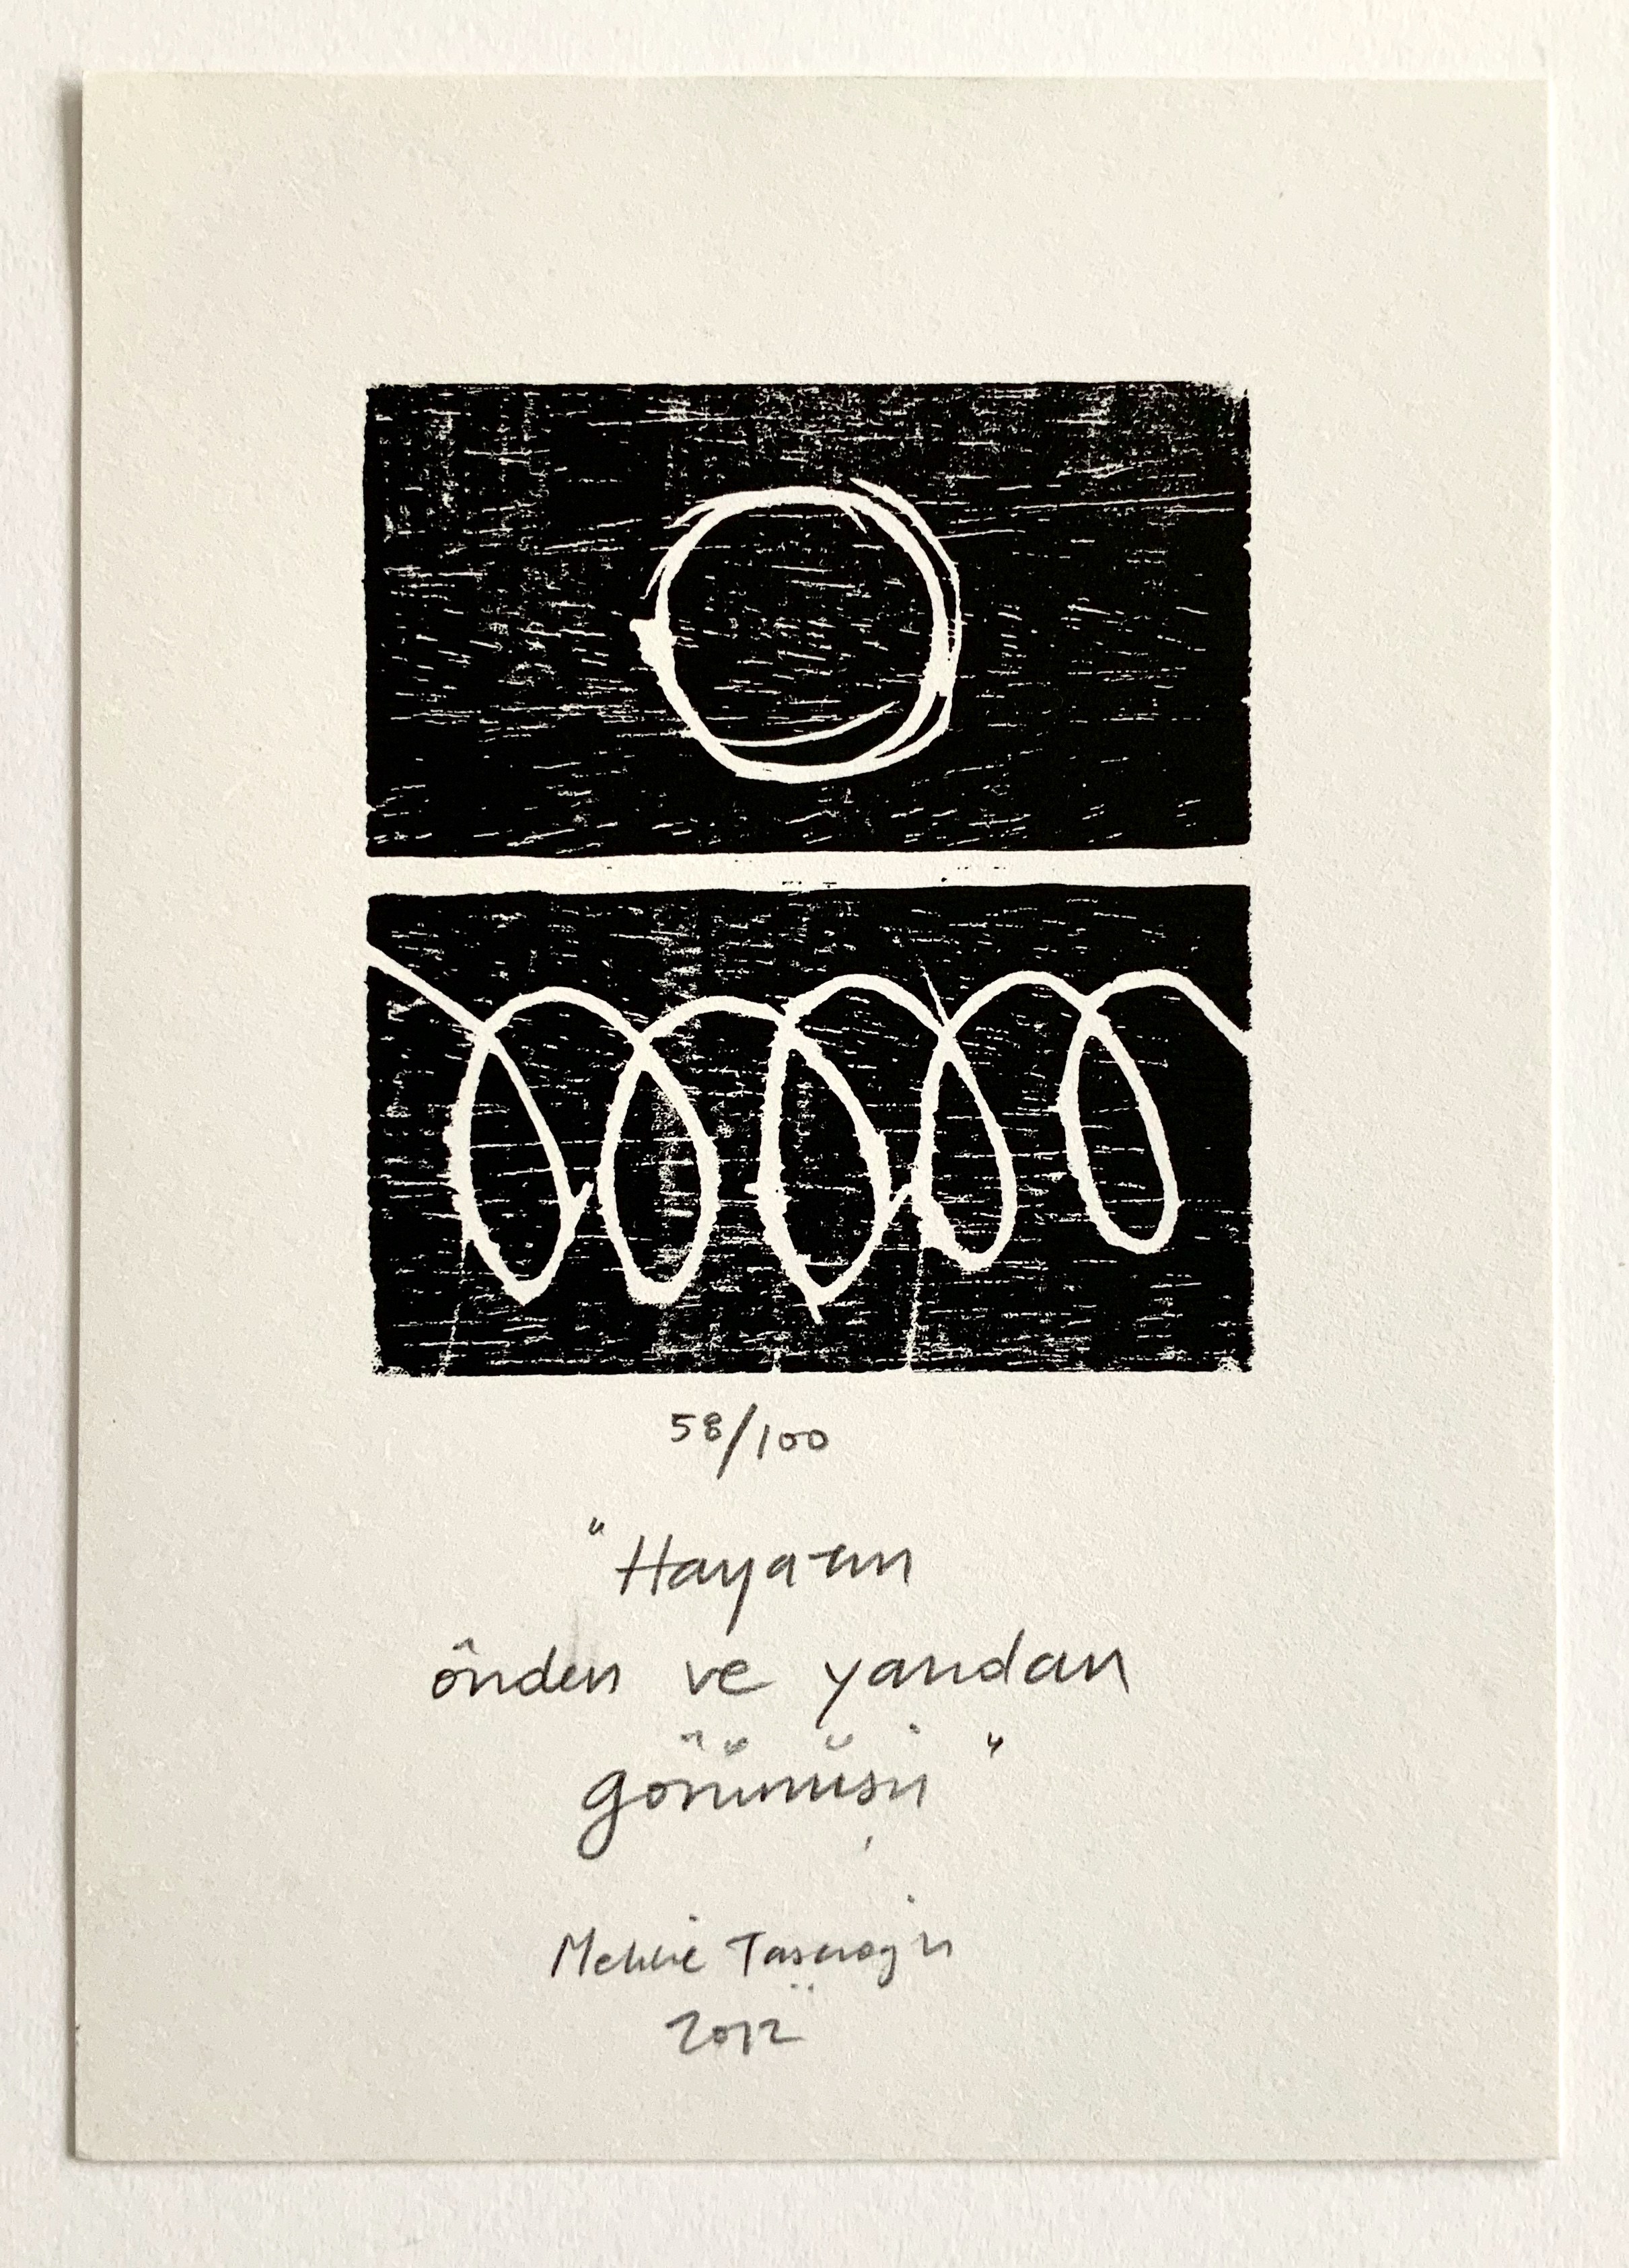 58/100
"Hayatın
önden ve yandan
görünüşü"
2012